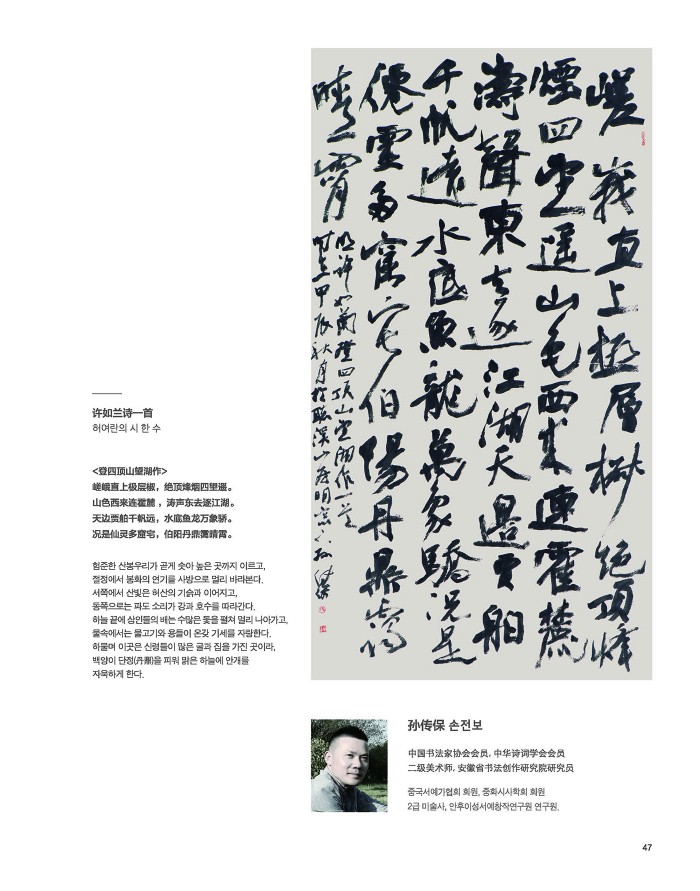 嵯峩直上極層椒絕頂烽
煙四望遥山色西来連霍麓
濤聲東去逐江湖天邊賈舶
千帆遠水底魚龍萬象驕況是
僊靈多窟宅伯陽丹鼎靄
晴霄
明許如蘭登四頂山望湖作一首
甲辰秋月於
许如兰诗一首
허여란의 시 한 수
<登四顶山望湖作>
嵯峨直上极层椒，绝顶烽烟四望遥。
山色西来连霍麓 ，涛声东去逐江湖。
天边贾舶千帆远，水底鱼龙万象骄。
况是仙灵多窟宅，伯阳丹鼎霭晴霄。
험준한 산봉우리가 곧게 솟아 높은 곳까지 이르고,
절정에서 봉화의 연기를 사방으로 멀리 바라본다.
서쪽에서 산빛은 허산의 기슭과 이어지고,
동쪽으로는 파도 소리가 강과 호수를 따라간다.
하늘 끝에 상인들의 배는 수많은 돛을 펼쳐 멀리 나아가고,
물속에서는 물고기와 용들이 온갖 기세를 자랑한다.
하물며 이곳은 신령들이 많은 굴과 집을 가진 곳이라,
백양이 단정(丹鼎)을 피워 맑은 하늘에 안개를
자욱하게 한다.
孙传保 손전보
中国书法家协会会员, 中华诗词学会会员
二级美术师, 安徽省书法创作研究院研究员
중국서예가협회 회원, 중화시사학회 회원
2급 미술사, 안후이성서예창작연구원 연구원.
47